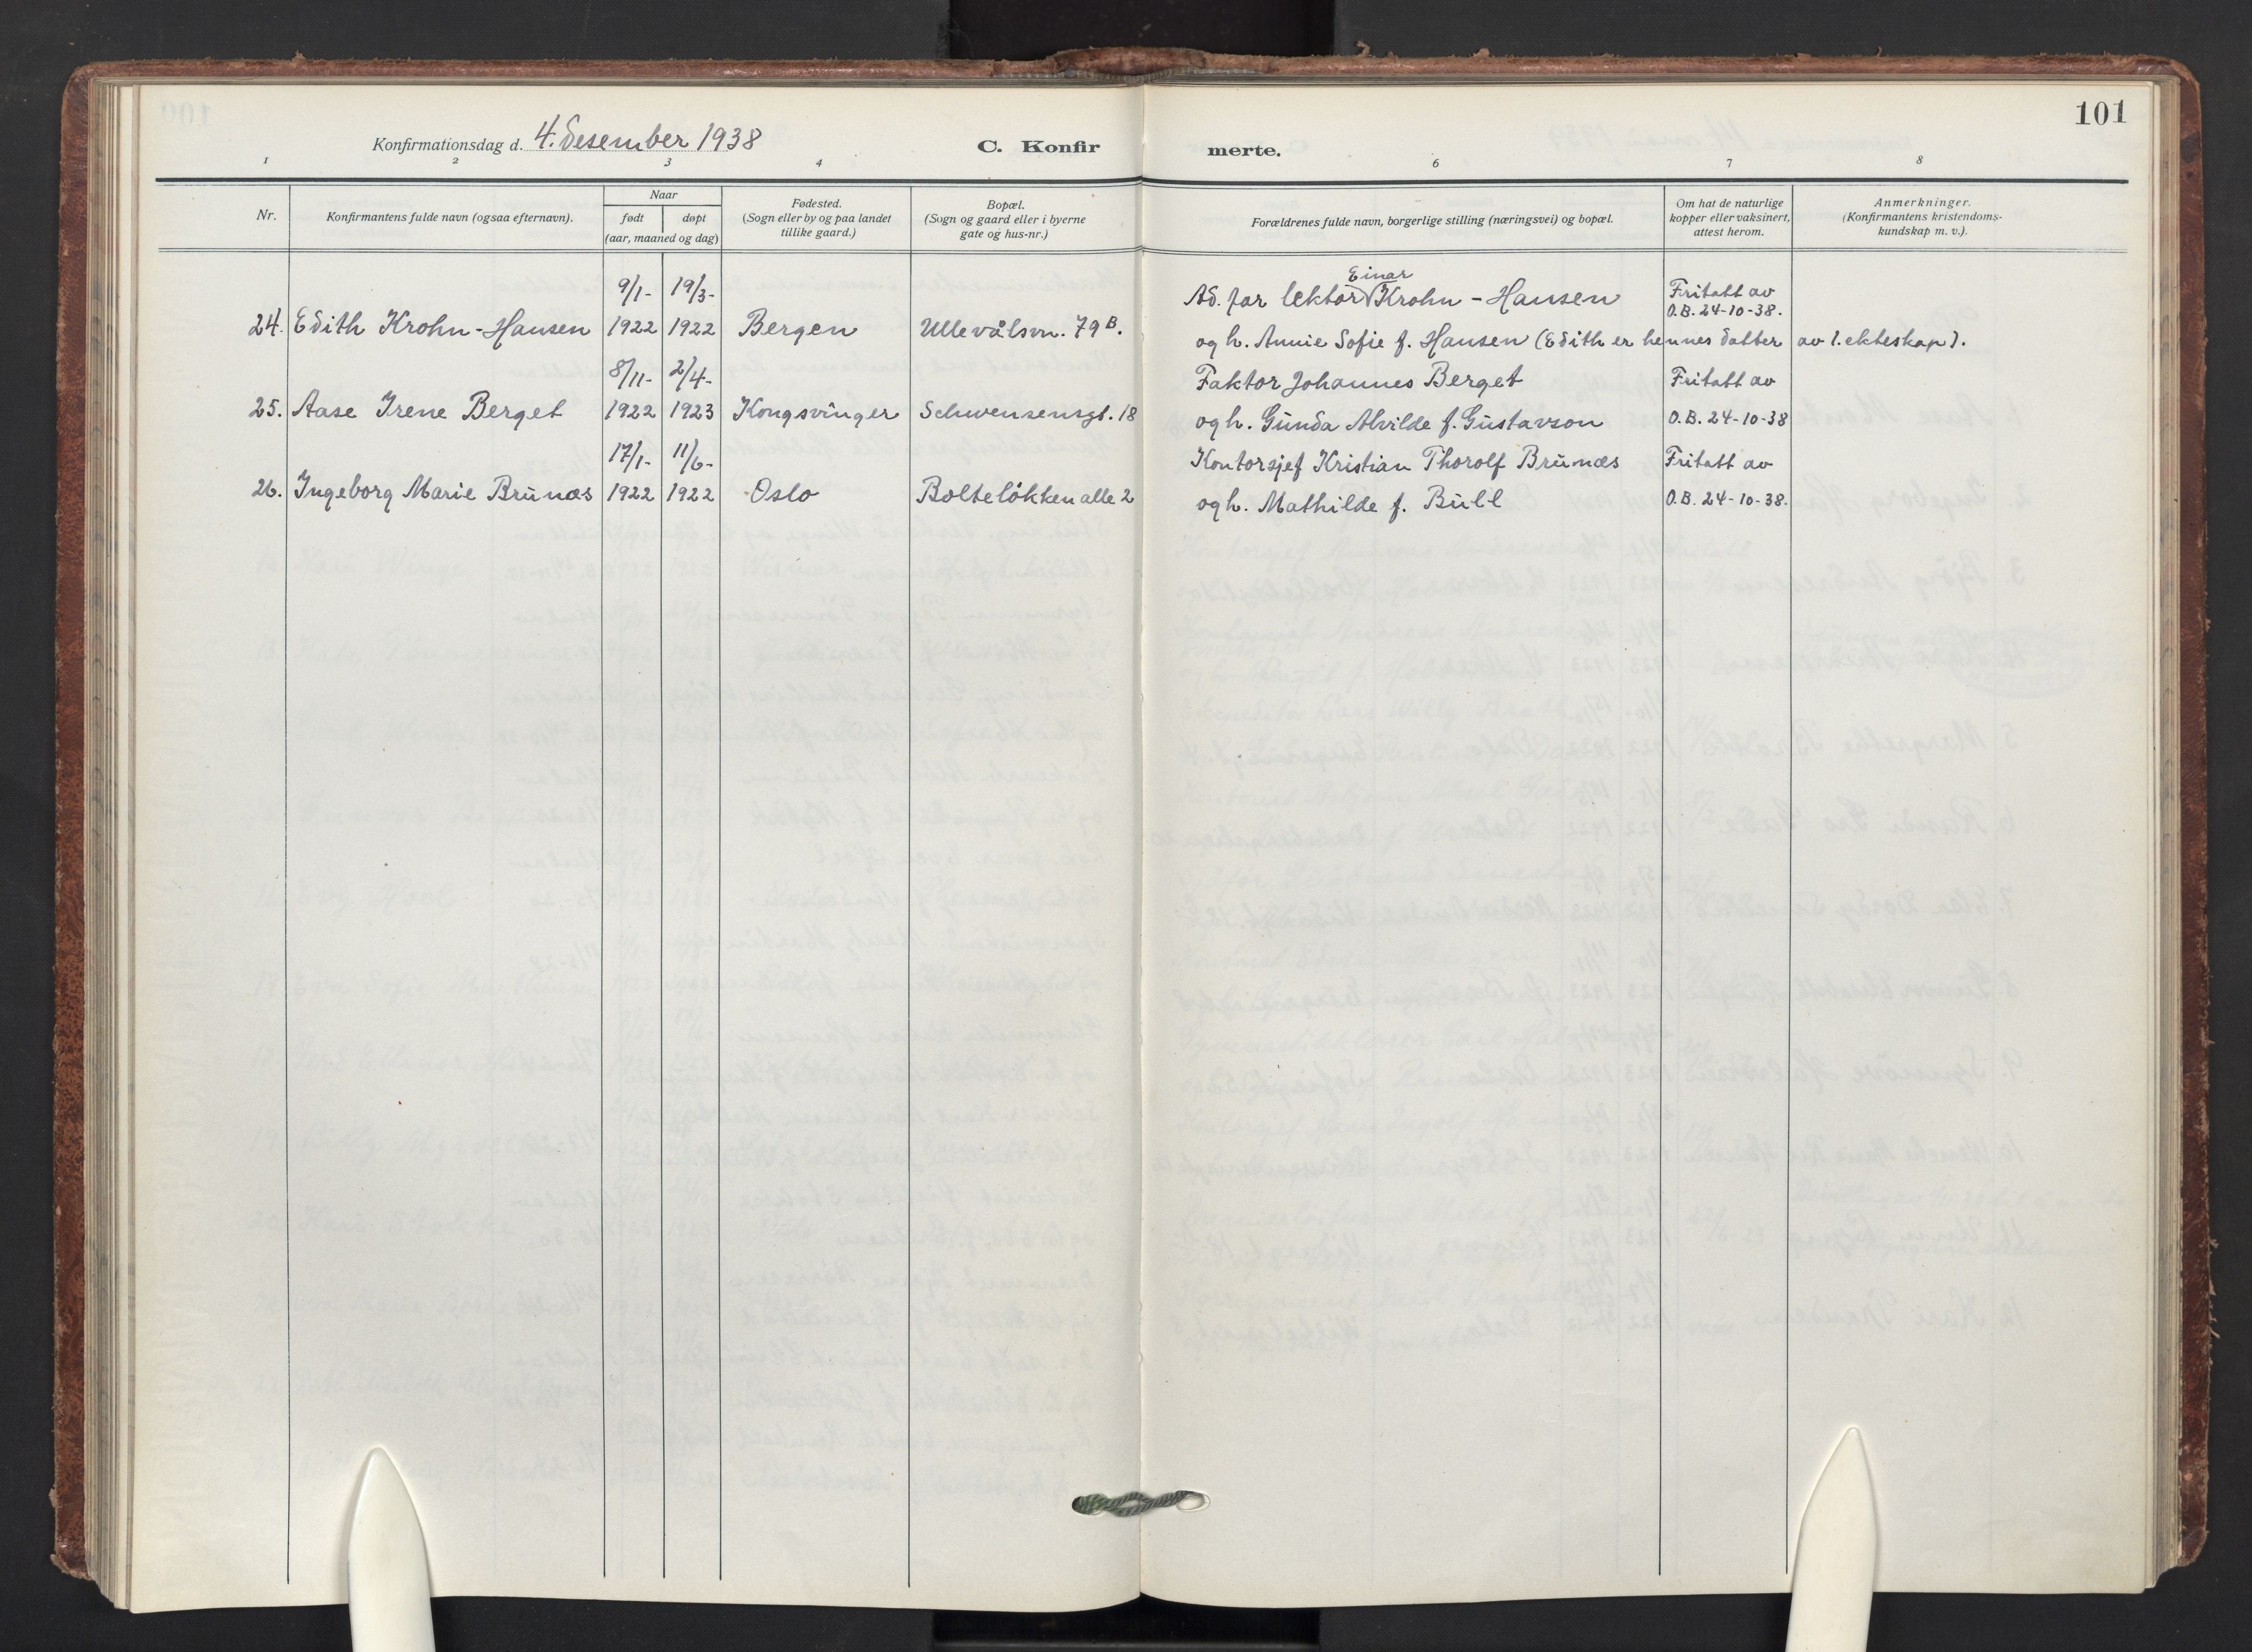 101
Konfirmationsdag d. 4. desember 1938
C. Konfir
merte.
1 2 3 4 6 7 8
Nr.
Konfirmantens fulde navn (ogsaa efternavn).
Naar
født døpt
(aar, maaned og dag)
Fødested.
(Sogn eller by og paa landet
tillike gaard.)
Bopæl.
(Sogn og gaard eller i byerne
gate og hus-nr.)
Forældrenes fulde navn, borgerlige stilling (næringsvei) og bopæl.
Om hat de naturlige
kopper eller vaksinert,
attest herom.
Anmerkninger.
(Konfirmantens kristendoms-
kundskap m. v.).
9/1- 19/3-
24. Edith Krohn-Hansen 1922 1922 Bergen Ullevålsvn. 79 B.
Einar
Ad. far lektor Krohn-Hansen
Fritatt av
O.B. 24-10-38.
og h. Annie Sofie f. Hansen (Edith er hennes datter av 1. ekteskap).
8/11- 2/4-
25. Aase Irene Berget 1922 1923 Kongsvinger Schwensensgt. 18
Faktor Johannes Berget Fritatt av
og h. Gunda Alvilde f. Gustavson O.B. 24-10-38
17/1- 11/6-
26. Ingeborg Marie Brunæs 1922 1922 Oslo Bolteløkken alle 2
Kontorsjef Kristian Thorolf Brunæs Fritatt av
og h. Mathilde f. Bull O.B. 24-10-38.